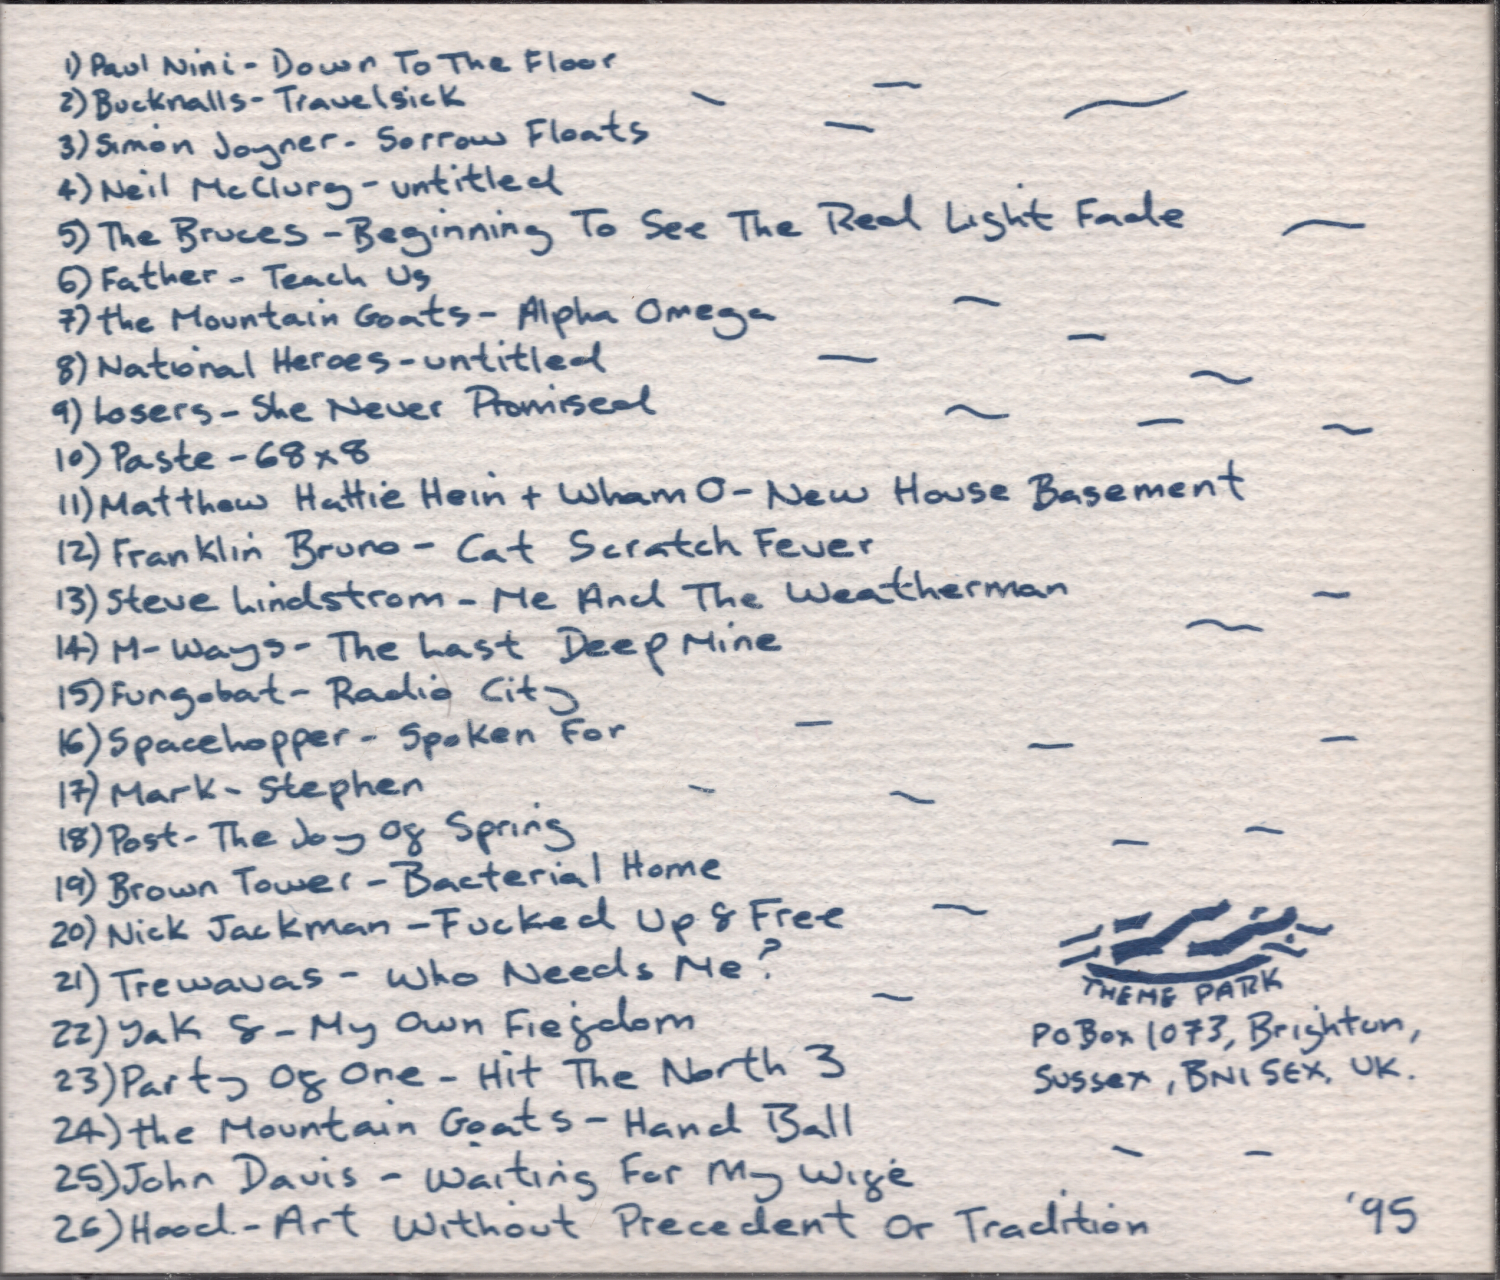 1) Paul Nini - Down To The Floor
2) Bucknalls - Travelsick
3) Simon Joyner - Sorrow Floats
4) Neil McClurg - untitled
5) The Bruces - Beginning To See The Real Light Fade
6) Father - Teach Us
7) the Mountain Goats - Alpha Omega
8) National Heroes - untitled
9) Losers - She Never Promised
10) Paste - 68x8
11) Matthew Hattie Hein + Wham O - New House Basement
12) Franklin Bruno - Cat Scratch Fever
13) Steve Lindstrom - Me And The Weatherman
14) M-Ways - The Last Deep Mine
15) Fungobat - Radio City
16) Spacehopper - Spoken For
17) Mark - Stephen
18) Post - The Joy Of Spring
19) Brown Tower - Bacterial Home
20) Nick Jackman - Fucked Up & Free
21) Trewavas - Who Needs Me?
22) Yak 8 - My Own Fiefdom
23) Party Of One - Hit The North 3
24) the Mountain Goats - Hand Ball
25) John Davis - Waiting For My Wife
26) Hood - Art Without Precedent Or Tradition
THEME PARK
PO Box 1073, Brighton,
Sussex, BN1 SEX. UK.
'95